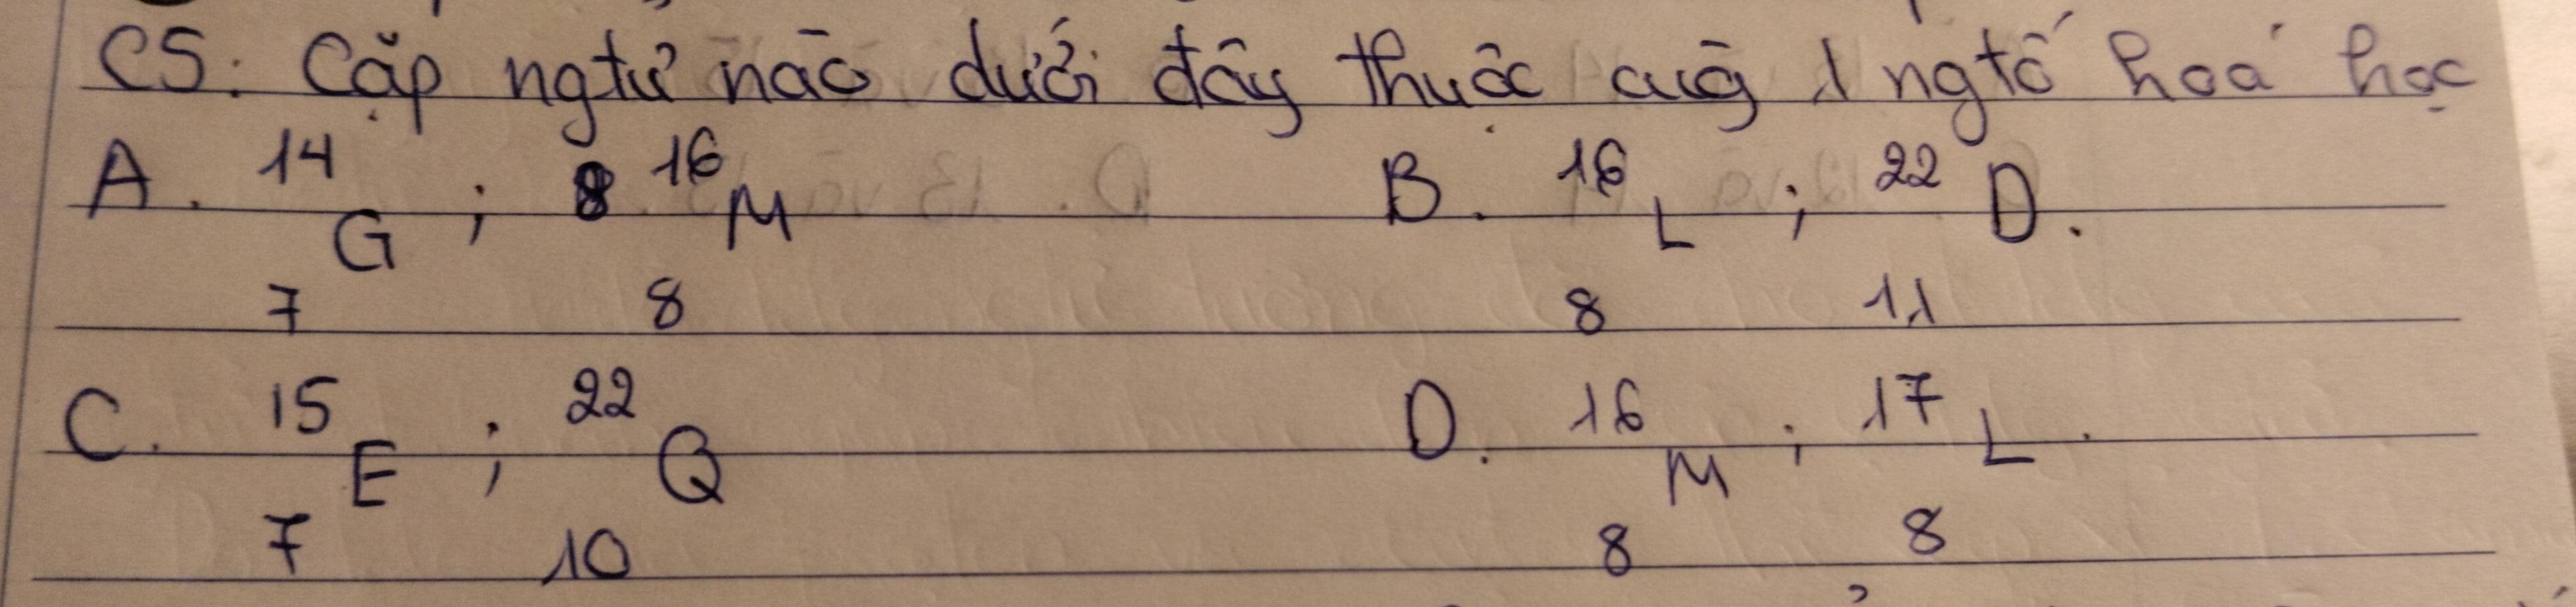 C5: Cặp ngtử nào dưới đây thuộc cùg 1 ngtố hoá học
A. 14 G ; 8 16 M B. 16 L ; 22 D.
7 8 8 11
C. 15 E ; 22 Q D. 16 M ; 17 L.
7 10 8 8